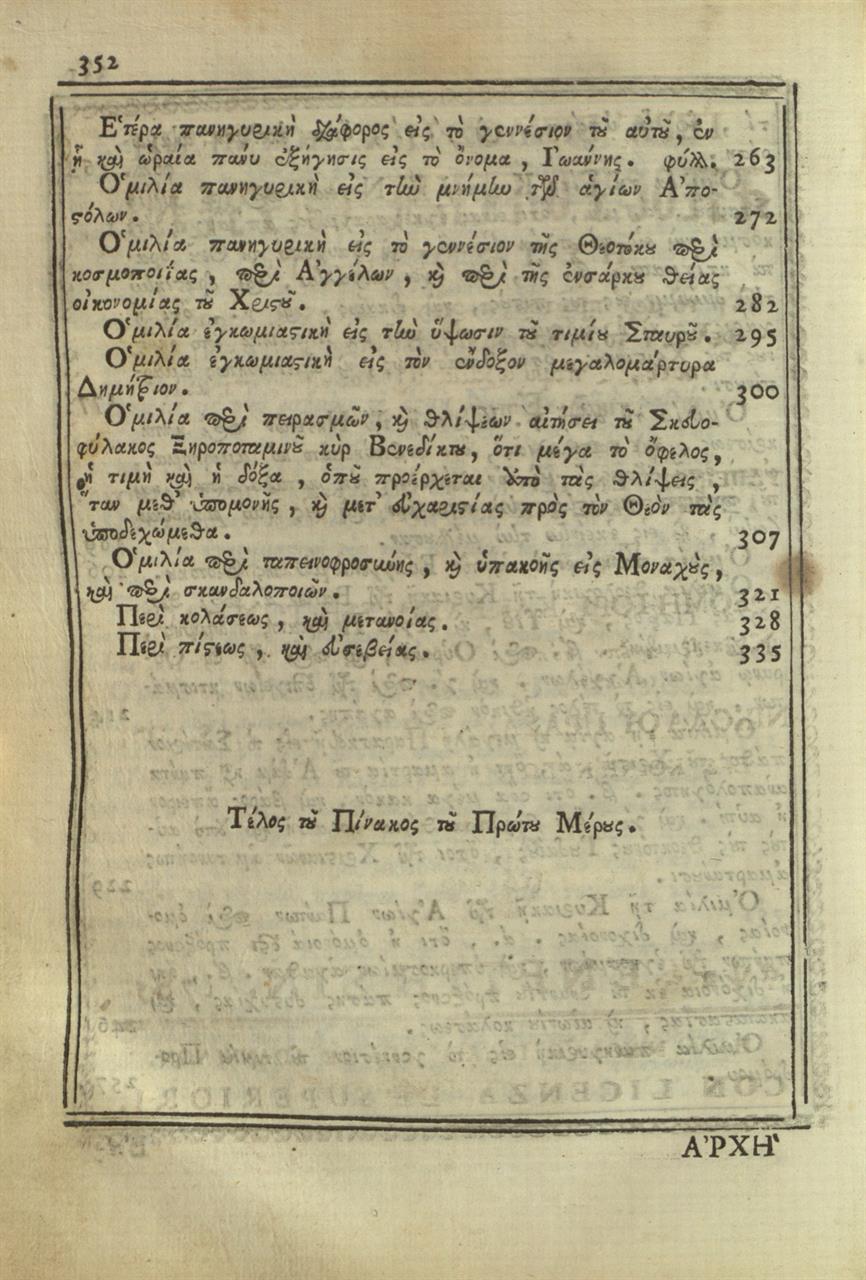 352
Ἑτέρα πανηγυρικὴ διάφορος εἰς τὸ γεννέσιον τοῦ αὐτοῦ, ἐν
ᾗ καὶ ὡραία πάνυ ἐξήγησις εἰς τὸ ὄνομα, Ἰωάννης. φύλλ. 263
Ὁμιλία πανηγυρικὴ εἰς τὴν μνήμην τῶν ἁγίων Ἀπο-
στόλων. 272
Ὁμιλία πανηγυρικὴ εἰς τὸ γεννέσιον τῆς Θεοτόκου περὶ
κοσμοποιΐας, περὶ Ἀγγέλων, καὶ περὶ τῆς ἐνσάρκου θείας
οἰκονομίας τοῦ Χριστοῦ. 282
Ὁμιλία ἐγκωμιαστικὴ εἰς τὴν ὕψωσιν τοῦ τιμίου Σταυροῦ. 295
Ὁμιλία ἐγκωμιαστικὴ εἰς τὸν ἔνδοξον μεγαλομάρτυρα
Δημήτριον. 300
Ὁμιλία περὶ πειρασμῶν, καὶ θλίψεων αἰτήσει τοῦ Σκευο-
φύλακος Ξηροποταμινοῦ κὺρ Βενεδίκτου, ὅτι μέγα τὸ ὄφελος,
ἡ τιμὴ καὶ ἡ δόξα, ὁποῦ προέρχεται ἀπὸ τὰς θλίψεις,
ὅταν μεθ' ὑπομονῆς, καὶ μετ' εὐχαριστίας πρὸς τὸν Θεὸν τὰς
ὑποδεχώμεθα. 307
Ὁμιλία περὶ ταπεινοφροσύνης, καὶ ὑπακοῆς εἰς Μοναχοὺς,
καὶ περὶ σκανδαλοποιῶν. 321
Περὶ κολάσεως, καὶ μετανοίας. 328
Περὶ πίστεως, καὶ εὐσεβείας. 335
Τέλος τοῦ Πίνακος τοῦ Πρώτου Μέρους.
ἈΡΧῊ